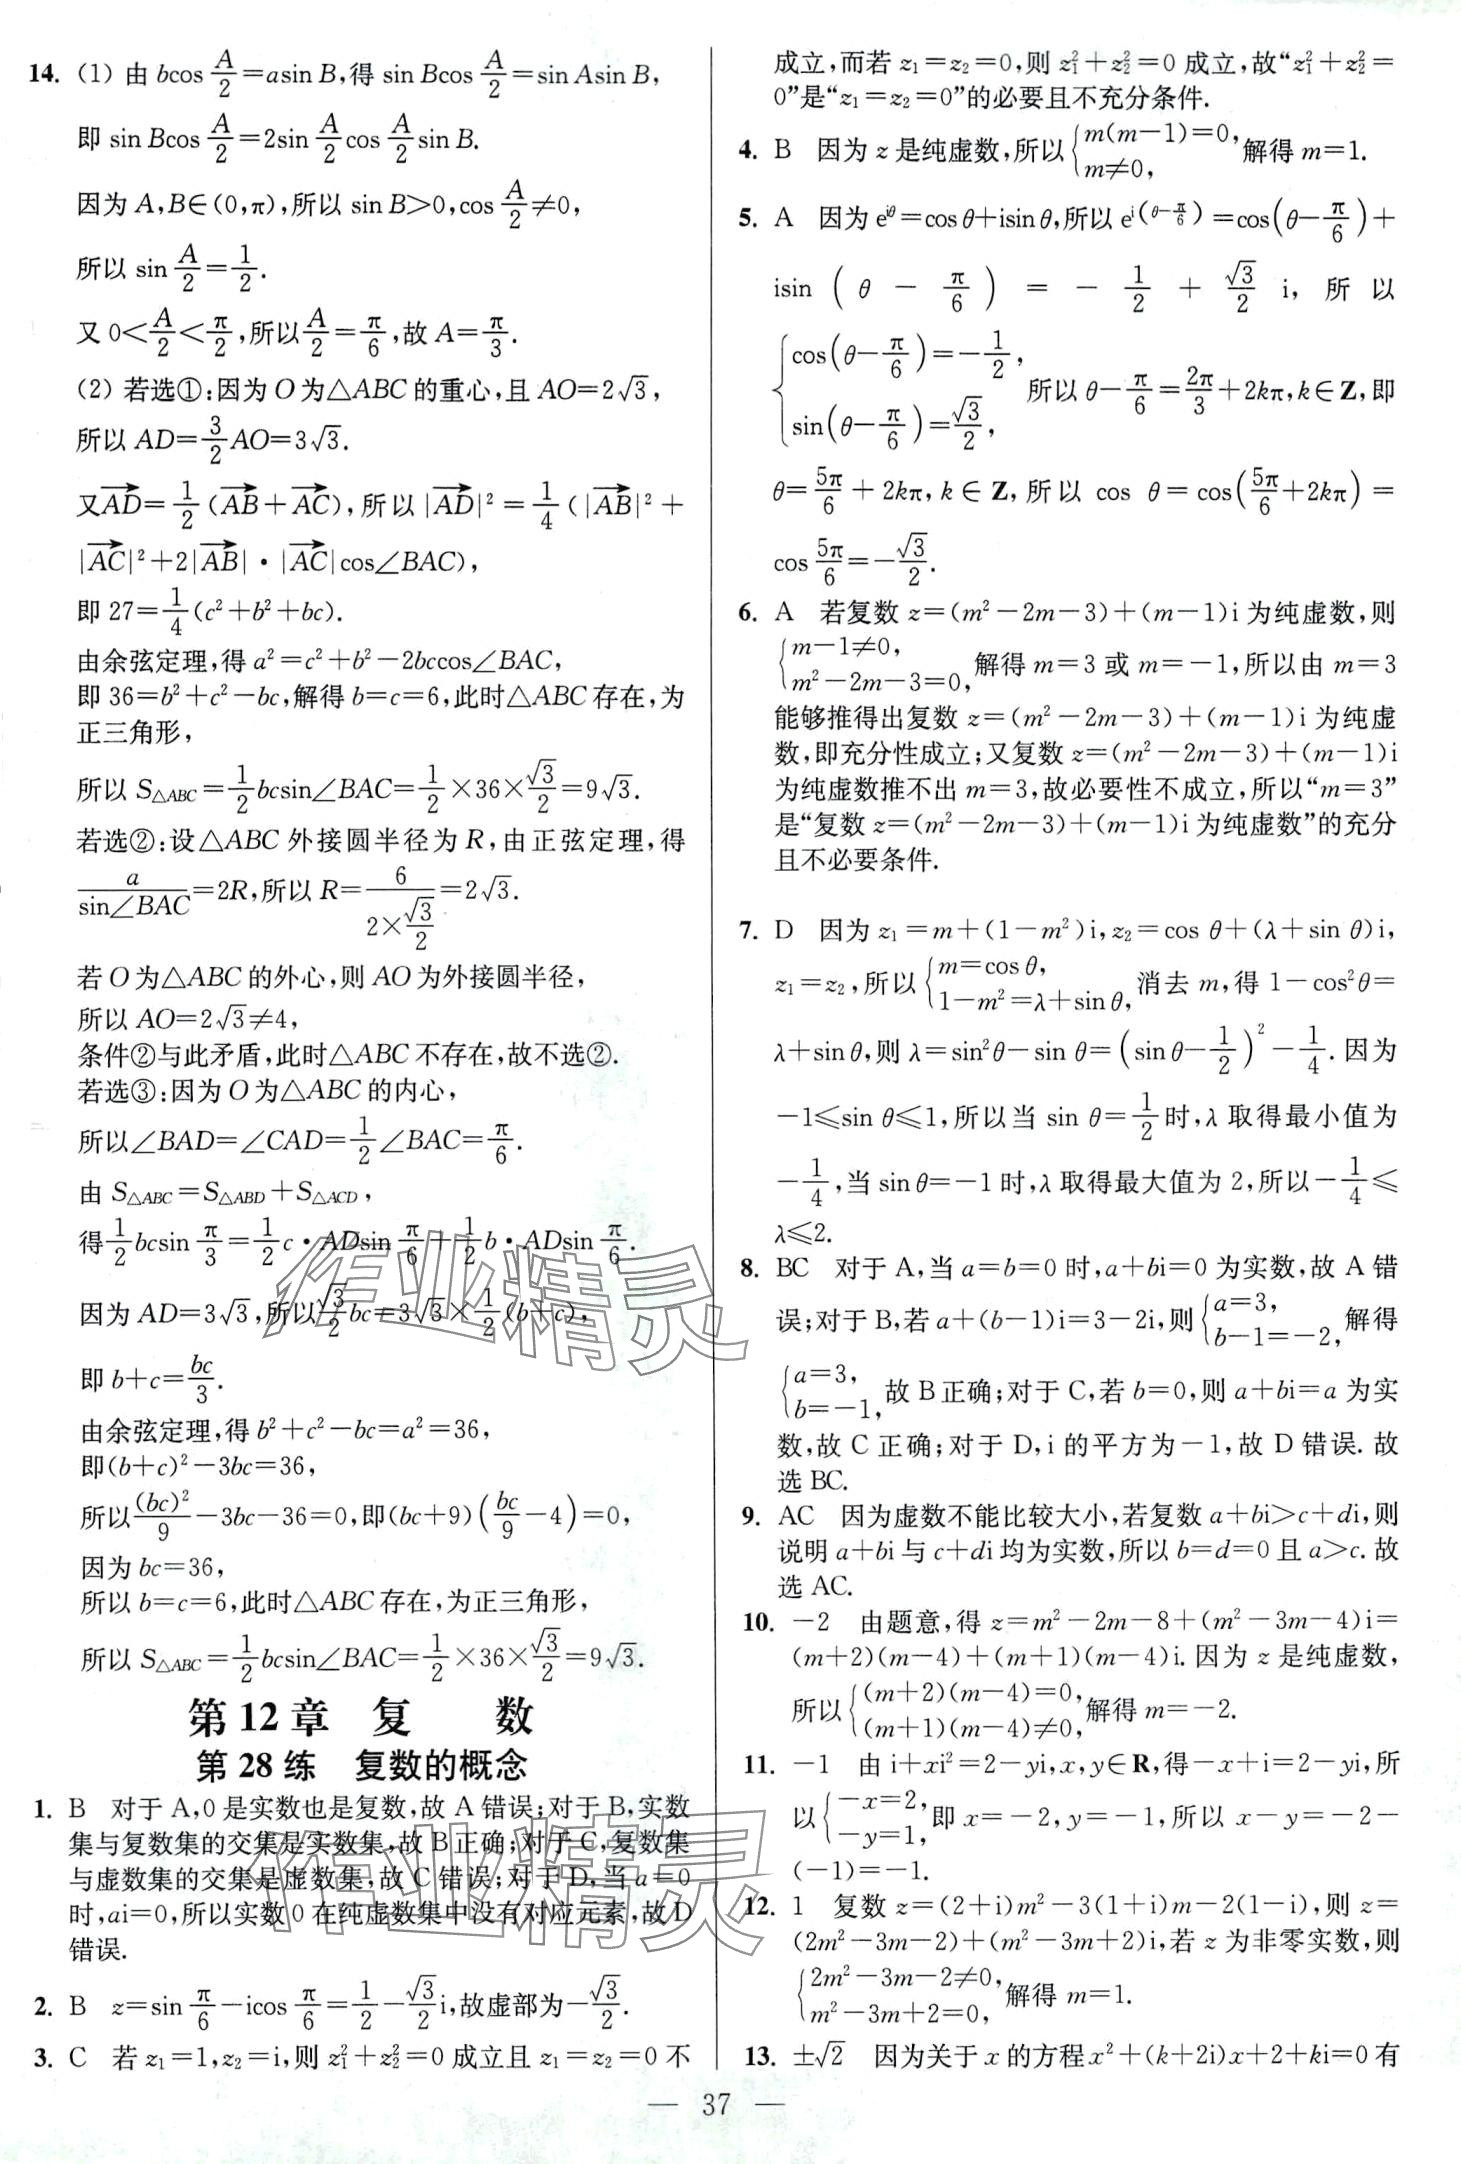 14. (1) 由 bcos A/2=asin B,得 sin Bcos A/2=sin Asin B,
即 sin Bcos A/2=2sin A/2 cos A/2 sin B.
因为 A,B∈(0,π),所以 sin B>0,cos A/2≠0,
所以 sin A/2=1/2.
又 0<A/2<π/2,所以A/2=π/6,故 A=π/3.
(2) 若选①:因为 O 为△ABC 的重心,且 AO=2√3,
所以 AD=3/2 AO=3√3.
又AD→=1/2(AB→+AC→),所以|AD→|²=1/4(|AB→|²+
|AC→|²+2|AB→|·|AC→|cos∠BAC),
即 27=1/4(c²+b²+bc).
由余弦定理,得 a²=c²+b²-2bccos∠BAC,
即 36=b²+c²-bc,解得 b=c=6,此时△ABC 存在,为
正三角形,
所以 S△ABC=1/2 bcsin∠BAC=1/2×36×√3/2=9√3.
若选②:设△ABC 外接圆半径为 R,由正弦定理,得
a/sin∠BAC=2R,所以 R=6/(2×√3/2)=2√3.
若 O 为△ABC 的外心,则 AO 为外接圆半径,
所以 AO=2√3≠4,
条件②与此矛盾,此时△ABC 不存在,故不选②.
若选③:因为 O 为△ABC 的内心,
所以∠BAD=∠CAD=1/2∠BAC=π/6.
由 S△ABC=S△ABD+S△ACD,
得1/2 bcsin π/3=1/2 c·ADsin π/6+1/2 b·ADsin π/6.
因为 AD=3√3,所以√3/2 bc=3√3×1/2(b+c),
即 b+c=bc/3.
由余弦定理,得 b²+c²-bc=a²=36,
即(b+c)²-3bc=36,
所以(bc)²/9-3bc-36=0,即(bc+9)(bc/9-4)=0,
因为 bc=36,
所以 b=c=6,此时△ABC 存在,为正三角形,
所以 S△ABC=1/2 bcsin∠BAC=1/2×36×√3/2=9√3.
第 12 章 复 数
第 28 练 复数的概念
1. B 对于 A,0 是实数也是复数,故 A 错误;对于 B,实数
集与复数集的交集是实数集,故 B 正确;对于 C,复数集
与虚数集的交集是虚数集,故 C 错误;对于 D,当 a=0
时,ai=0,所以实数 0 在纯虚数集中没有对应元素,故 D
错误.
2. B z=sin π/6-icos π/6=1/2-√3/2 i,故虚部为-√3/2.
3. C 若 z₁=1,z₂=i,则 z₁²+z₂²=0 成立且 z₁=z₂=0 不
成立,而若 z₁=z₂=0,则 z₁²+z₂²=0 成立,故“z₁²+z₂²=
0”是“z₁=z₂=0”的必要且不充分条件.
4. B 因为 z 是纯虚数,所以{m(m-1)=0, m≠0, 解得 m=1.
5. A 因为 e^(iθ)=cos θ+isin θ,所以 e^(i(θ-π/6))=cos(θ-π/6)+
isin(θ-π/6)=-1/2+√3/2 i,所以
{cos(θ-π/6)=-1/2, sin(θ-π/6)=√3/2, 所以 θ-π/6=2π/3+2kπ,k∈Z,即
θ=5π/6+2kπ,k∈Z,所以 cos θ=cos(5π/6+2kπ)=
cos 5π/6=-√3/2.
6. A 若复数 z=(m²-2m-3)+(m-1)i 为纯虚数,则
{m-1≠0, m²-2m-3=0, 解得 m=3 或 m=-1,所以由 m=3
能够推得出复数 z=(m²-2m-3)+(m-1)i 为纯虚
数,即充分性成立;又复数 z=(m²-2m-3)+(m-1)i
为纯虚数推不出 m=3,故必要性不成立,所以“m=3”
是“复数 z=(m²-2m-3)+(m-1)i 为纯虚数”的充分
且不必要条件.
7. D 因为 z₁=m+(1-m²)i,z₂=cos θ+(λ+sin θ)i,
z₁=z₂,所以{m=cos θ, 1-m²=λ+sin θ, 消去 m,得 1-cos²θ=
λ+sin θ,则 λ=sin²θ-sin θ=(sin θ-1/2)²-1/4.因为
-1≤sin θ≤1,所以当 sin θ=1/2时,λ 取得最小值为
-1/4,当 sin θ=-1 时,λ 取得最大值为 2,所以-1/4≤
λ≤2.
8. BC 对于 A,当 a=b=0 时,a+bi=0 为实数,故 A 错
误;对于 B,若 a+(b-1)i=3-2i,则{a=3, b-1=-2, 解得
{a=3, b=-1, 故 B 正确;对于 C,若 b=0,则 a+bi=a 为实
数,故 C 正确;对于 D,i 的平方为-1,故 D 错误.故
选 BC.
9. AC 因为虚数不能比较大小,若复数 a+bi>c+di,则
说明 a+bi 与 c+di 均为实数,所以 b=d=0 且 a>c.故
选 AC.
10. -2 由题意,得 z=m²-2m-8+(m²-3m-4)i=
(m+2)(m-4)+(m+1)(m-4)i.因为 z 是纯虚数,
所以{(m+2)(m-4)=0, (m+1)(m-4)≠0, 解得 m=-2.
11. -1 由 i+xi²=2-yi,x,y∈R,得-x+i=2-yi,所
以{-x=2, -y=1, 即 x=-2,y=-1,所以 x-y=-2-
(-1)=-1.
12. 1 复数 z=(2+i)m²-3(1+i)m-2(1-i),则 z=
(2m²-3m-2)+(m²-3m+2)i,若 z 为非零实数,则
{2m²-3m-2≠0, m²-3m+2=0, 解得 m=1.
13. ±√2 因为关于 x 的方程 x²+(k+2i)x+2+ki=0 有
— 37 —
作业精灵
作业精灵